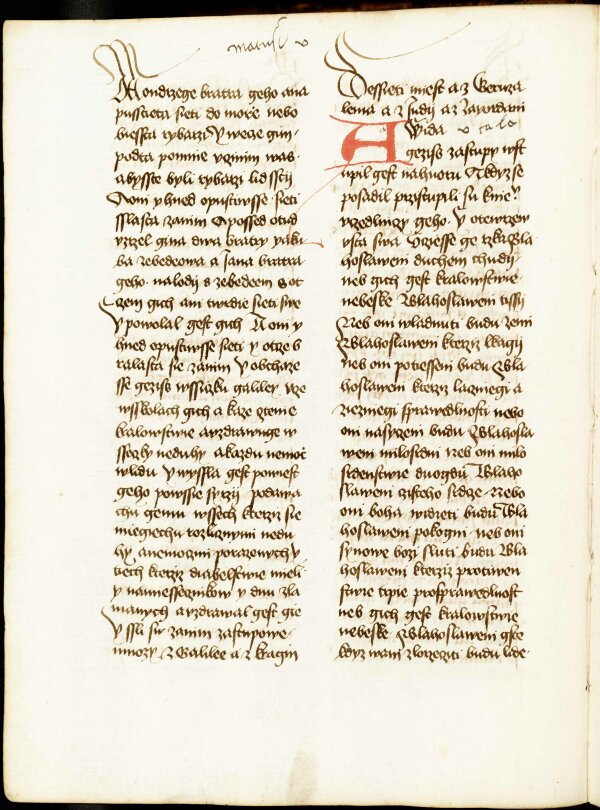 Ondrzege bratra geho ana
pusscieta sieti do morze nebo
biessta rybarzi Y wece gim
podta pomnie vczinim was
abysste byli rybarzi lidsstij
A oni yhned opustiwsse sieti
sslasta zanim A possed otud
vzrzel gina dwa bratry yaku
ba zebedeowa a Jana bratra
geho na lodij s zebedeem s ot
czem gich ani twrdie sieti swe
Y powolal gest gich A oni y
hned opustiwsse sieti y otcze b
ralasta sie zanim Y obchazie
sse geziss wssiczku galiley vcze
w sskolach gich a kaze cztenie
kralowstwie a vzdrawuge w
sseczky neduhy a kazdu nemocz
w lidu Y wyssla gest powiest
geho powssie syrzy podawa
chu gemu wssech kterziz sie
miegiechu rozlicznymi nedu
hy a nemoczmi porazenych y
tiech kterziz diabelstwie mieli
y namiessecznikow y dnu zla
manych a vzdrawal gest gie
Y ssli su zanim zastupowe
mnozy z Galilee a z kragin
Dessieti miest a z Geruza
lema a z sudij a z zayordani
A Wida
geziss zastupy wst
upil gest nahoru A kdyz se
posadil przistupili su knie
vczedlnicy geho Y otewrzew
vsta swa vcziesse ge rzka Bla
hoslaweni duchem chudij
neb gich gest kralowstwie
nebeske Blahoslaweni tissij
Neb oni wladnuti budu zemi
Blahoslaweni kterziz lkagij
neb oni potiesseni budu Bla
hoslaweni kterziz laczniegi a
ziezniegi sprawedlnosti nebo
oni nasyceni budu Blahosla
weni milosrdni neb oni milo
srdenstwie duogdu Blaho
slaweni czisteho srdze Nebo
oni boha widieti budu Bla
hoslaweni pokogni neb oni
synowe bozi sluti budu Bla
hoslaweni kterziz protiwen
stwie trpie pro sprawedlnost
neb gich gest kralowstwie
nebeske Blahoslaweni gste
kdyz wam zlorzeciti budu lide